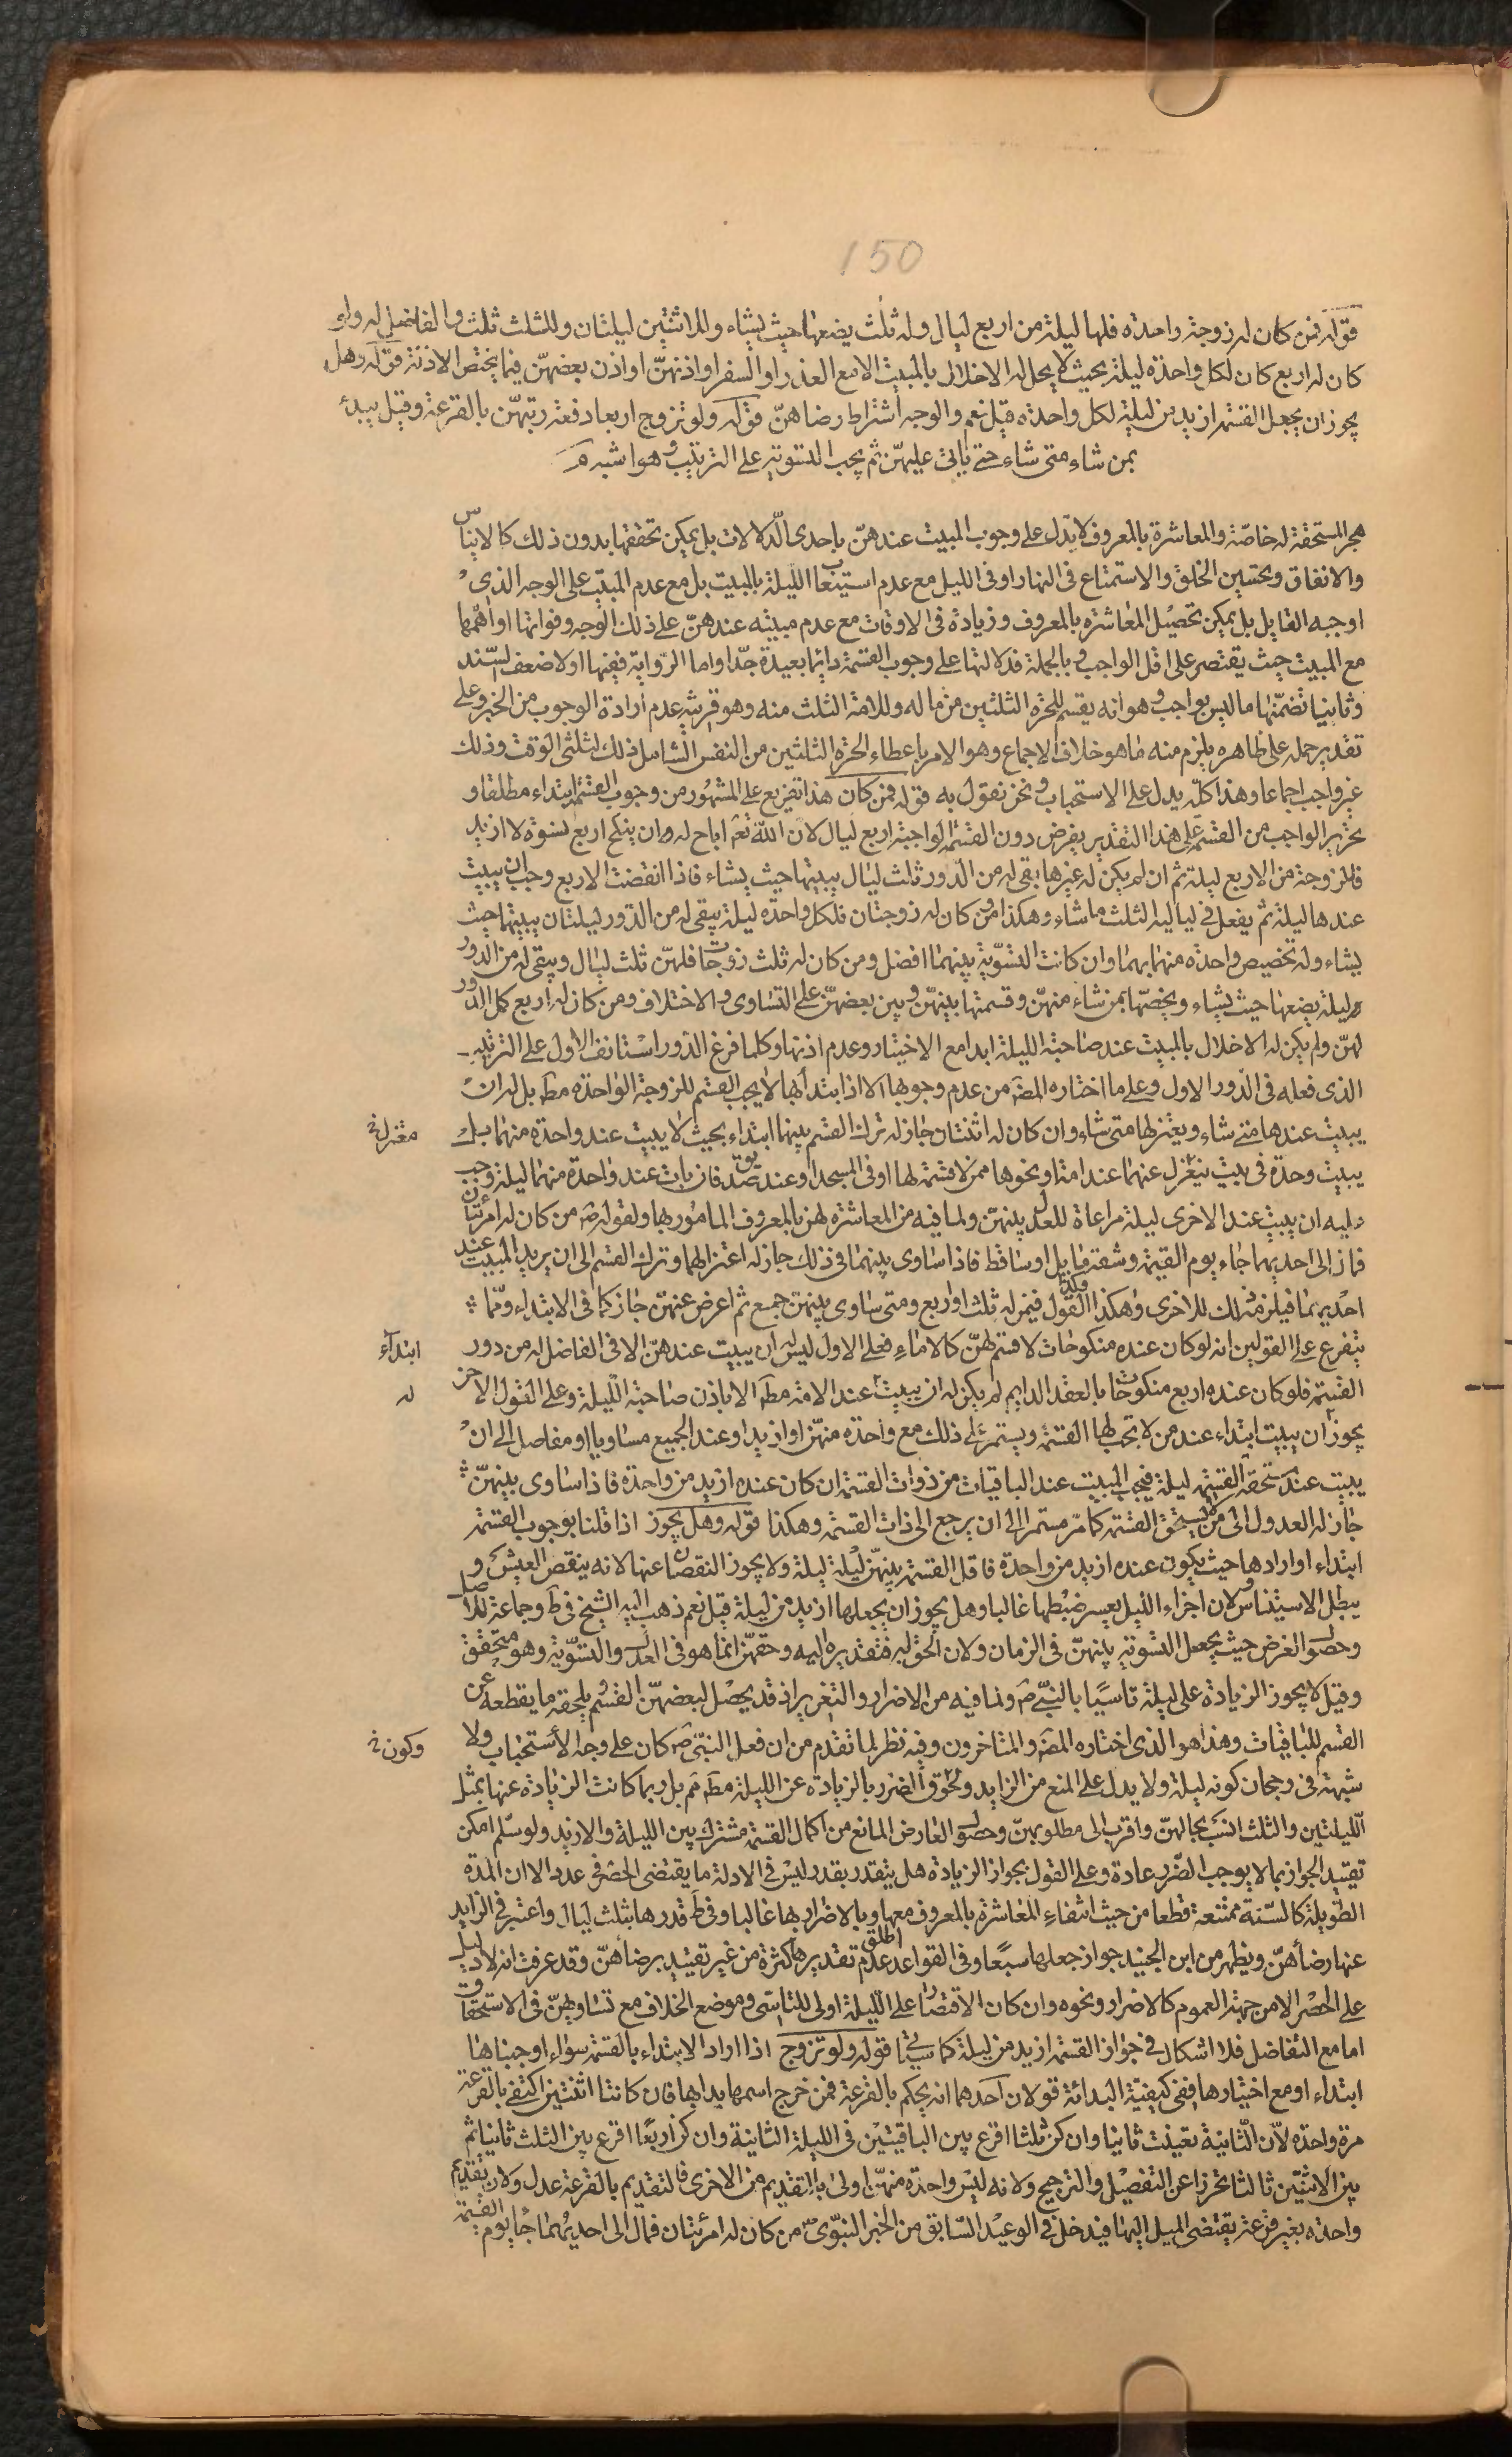 150
قوله فمن كان له زوجة واحدة فلها ليلة من اربع ليال وله ثلث يضعها حيث يشاء وللاثنتين ليلتان وللثلث ثلث والفاضل له ولو
كان له اربع كان لكل واحدة ليلة بحيث لا يحل له الاخلال بالمبيت الا مع العذر او السفر او اذنهنّ او اذن بعضهنّ فيما يختص الاذنة قوله وهل
يجوز ان يجعل القسمة ازيد من ليلة لكل واحدة قيل نعم والوجه اشتراط رضاهنّ قوله ولو تزوج اربعا دفعة رتبهنّ بالقرعة وقيل يبدء
بمن شاء متى شاء حتى ياتى عليهنّ ثم يجب التسوية على الترتيب وهو اشبه
هجر المستحقة له خاصّة والمعاشرة بالمعروف لا يدل على وجوب المبيت عندهنّ باحدى الدّلالات بل يمكن تحققها بدون ذلك كالايناس
والانفاق وتحسين الخلق والاستمتاع فى النهار او فى الليل مع عدم استيعاب الليلة بالمبيت بل مع عدم المبيت على الوجه الذى
اوجبه القايل بل يمكن تحصيل المعاشرة بالمعروف وزيادة فى الاوقات مع عدم مبيته عندهنّ على ذلك الوجه وفواتها او اهمّها
مع المبيت حيث يقتصر على اقل الواجب وبالجملة فدلالتها على وجوب القسمة دايما بعيدة جدّا واما الرّواية ففيها اولا ضعف السّند
وثانيا تضمّنها ما ليس بواجب وهو انه يقسم للحرّة الثلثين من ماله وللامة الثلث منه وهو قرينة عدم ارادة الوجوب من الخبر وعلى
تقدير حمله على ظاهره يلزم منه ما هو خلاف الاجماع وهو الامر باعطاء الحرّة الثلثين من النفس الشامل ذلك لثلثى الوقت وذلك
غير واجب اجماعا وهذا كلّه يدل على الاستحباب ونحن نقول به قوله فمن كان هذا تفريع على المشهور من وجوب القسمة ابتداء مطلقا و
تحرير الواجب من القسمة على هذا التقدير يفرض دون القسمة الواجبة اربع ليال لان الله تعم اباح له ان ينكح اربع نسوة لا ازيد
فللزوجة من الاربع ليلة ثم ان لم يكن له غيرها بقى له من الدّور ثلث ليال يبيتها حيث يشاء فاذا انقضت الاربع وجب ان يبيت
عندها ليلة ثم يفعل فى لياليه الثلث ما شاء وهكذا ومن كان له زوجتان فلكل واحدة ليلة يبقى له من الدّور ليلتان يبيتهما حيث
يشاء وله تخصيص واحدة منهما بهما وان كانت التسويّة بينهما افضل ومن كان له ثلث زوجات فلهنّ ثلث ليال ويبقى له من الدّور
ليلة يضعها حيث يشاء ويخصّها بمن شاء منهنّ وقسمتها بينهنّ وبين بعضهنّ على التساوى والاختلاف ومن كان له اربع كمل الدّور
لهنّ ولم يكن له الاخلال بالمبيت عند صاحبة الليلة ابدا مع الاختيار وعدم اذنها وكلما فرغ الدّور استانف الاول على الترتيب
الذى فعله فى الدّور الاول وعلى ما اختاره المصَ من عدم وجوبها الا اذا ابتدا بها لا يجب القسم للزوجة الواحدة مط بل له ان
يبيت عندها متى شاء ويعتزلها متى شاء وان كان له اثنتان جاز له ترك القسم بينهما ابتداء بحيث لا يبيت عند واحدة منهما بل
معتزل خ
يبيت وحده فى بيت ينعزل عنهما عند امة او نحوها ممن لا قسمة لها او فى المسجد او عند صديق فان بات عند واحدة منهما ليلة وجب
عليه ان يبيت عند الاخرى ليلة مراعاة للعدل بينهنّ ولما فيه من المعاشرة لهن بالمعروف المامور بها ولقوله ص من كان له امرئتان
فمال الى احديهما جاء يوم القيمة وشقه مايل او ساقط فاذا ساوى بينهما فى ذلك جاز له اعتزالهما وترك القسم الى ان يريد المبيت عند
احديهما فيلزم مثل ذلك للاخرى وهكذا القول فيمن له ثلث او اربع ومتى ساوى بينهنّ جمع ثم اعرض عنهنّ جاز كما فى الابتداء وممّا
يتفرع على القولين انه لو كان عنده منكوحات لا قسم لهنّ كالاماء فعلى الاول ليس له ان يبيت عندهنّ الا فى الفاضل له من دور
ابتداء
القسمة فلو كان عنده اربع منكوحات بالعقد الدايم لم يكن له ان يبيت عند الامة مط الا باذن صاحبة الليلة وعلى القول الاخر
له
يجوز ان يبيت ابتداء عند من لا تجب لها القسمة ويستمر على ذلك مع واحدة منهنّ او ازيد او عند الجميع مساويا او مفاصل الى ان
يبيت عند مستحقة القسمة ليلة فيجب المبيت عند الباقيات من ذوات القسمة ان كان عنده ازيد من واحدة فاذا ساوى بينهنّ
جاز له العدول الى من لا يستحق القسمة كما مرّ مستمرا الى ان يرجع الى ذات القسمة وهكذا قوله وهل يجوز اذا قلنا بوجوب القسمة
ابتداء او ارادها حيث يكون عنده ازيد من واحدة فاقل القسمة بينهنّ ليلة ليلة ولا يجوز النقصان عنها لانه ينقص العيش و
يبطل الاستيناس ولان اجزاء الليل يعسر ضبطها غالبا وهل يجوز ان يجعلها ازيد من ليلة قيل نعم ذهب اليه الشيخ فى ط وجماعة للاصل
وحصول الغرض حيث يجعل التسوية بينهنّ فى الزمان ولان الحق له فتقديره اليه وحقهنّ انما هو فى العدل والتسويّة وهو متحقق
وقيل لا يجوز الزيادة على ليلة تاسيًا بالنبىّ ص ولما فيه من الاضرار والتغرير اذ قد يحصل لبعضهنّ القسم يلحقه ما يقطعه عن
القسم للباقيات وهذا هو الذى اختاره المصَ والمتاخرون وفيه نظر لما تقدم من ان فعل النبىّ ص كان على وجه الاستحباب ولا
وكون خ
شبهة فى رجحان كونه ليلة ولا يدل على المنع من الزايد ولحوق الضرر بالزيادة عن الليلة مط مم بل ربما كانت الزيادة عنها بمثل
اللّيلتين والثلث انسب بحالهنّ واقرب الى مطلوبهنّ وحصول العارض المانع من اكمال القسمة مشترك بين الليلة والازيد ولو سلّم امكن
تقييد الجواز بما لا يوجب الضّرر عادة وعلى القول بجواز الزيادة هل يتقدر بقدر ليس فى الادلة ما يقتضى الحصر فى عدد الا ان المدّة
الطويلة كالسّنة ممتنعة قطعا من حيث انتفاء المعاشرة بالمعروف معها وبالاضرار بها غالبا وفى ط قدرها بثلث ليال واعتبر فى الزايد
عنها رضاهنّ ويظهر من ابن الجنيد جواز جعلها سبعًا وفى القواعد اطلق عدم تقديرها كثرة من غير تقييد برضاهنّ وقد عرفت انه لا دليل
على الحصر الا من جهة العموم كالاضرار ونحوه وان كان الاقتصار على الليلة اولى للتاسّى وموضع الخلاف مع تساويهنّ فى الاستحقاق
اما مع التفاضل فلا اشكال فى جواز القسمة ازيد من ليلة كما سياتى قوله ولو تزوج اذا اراد الابتداء بالقسمة سواء اوجبناها
ابتداء او مع اختيارها ففى كيفيّة البداءة قولان احدهما انه يحكم بالقرعة فمن خرج اسمها بدا بها فان كانتا اثنتين اكتفى بالقرعة
مرة واحدة لانّ الثّانية تعينت ثانيا وان كن ثلثا اقرع بين الباقيتين فى الليلة الثانية وان كن اربعًا اقرع بين الثلث ثانيا ثم
بين الاثنتين ثالثا تحرزا عن التفضيل والترجيح ولانه ليس واحدة منهنّ اولى بالتقديم من الاخرى فالتقديم بالقرعة عدل ولان تقديم
واحدة بغير قرعة يقتضى الميل اليها فيدخل فى الوعيد السّابق من الخبر النبوّى من كان له امرئتان فمال الى احديهما جاء يوم القيمة